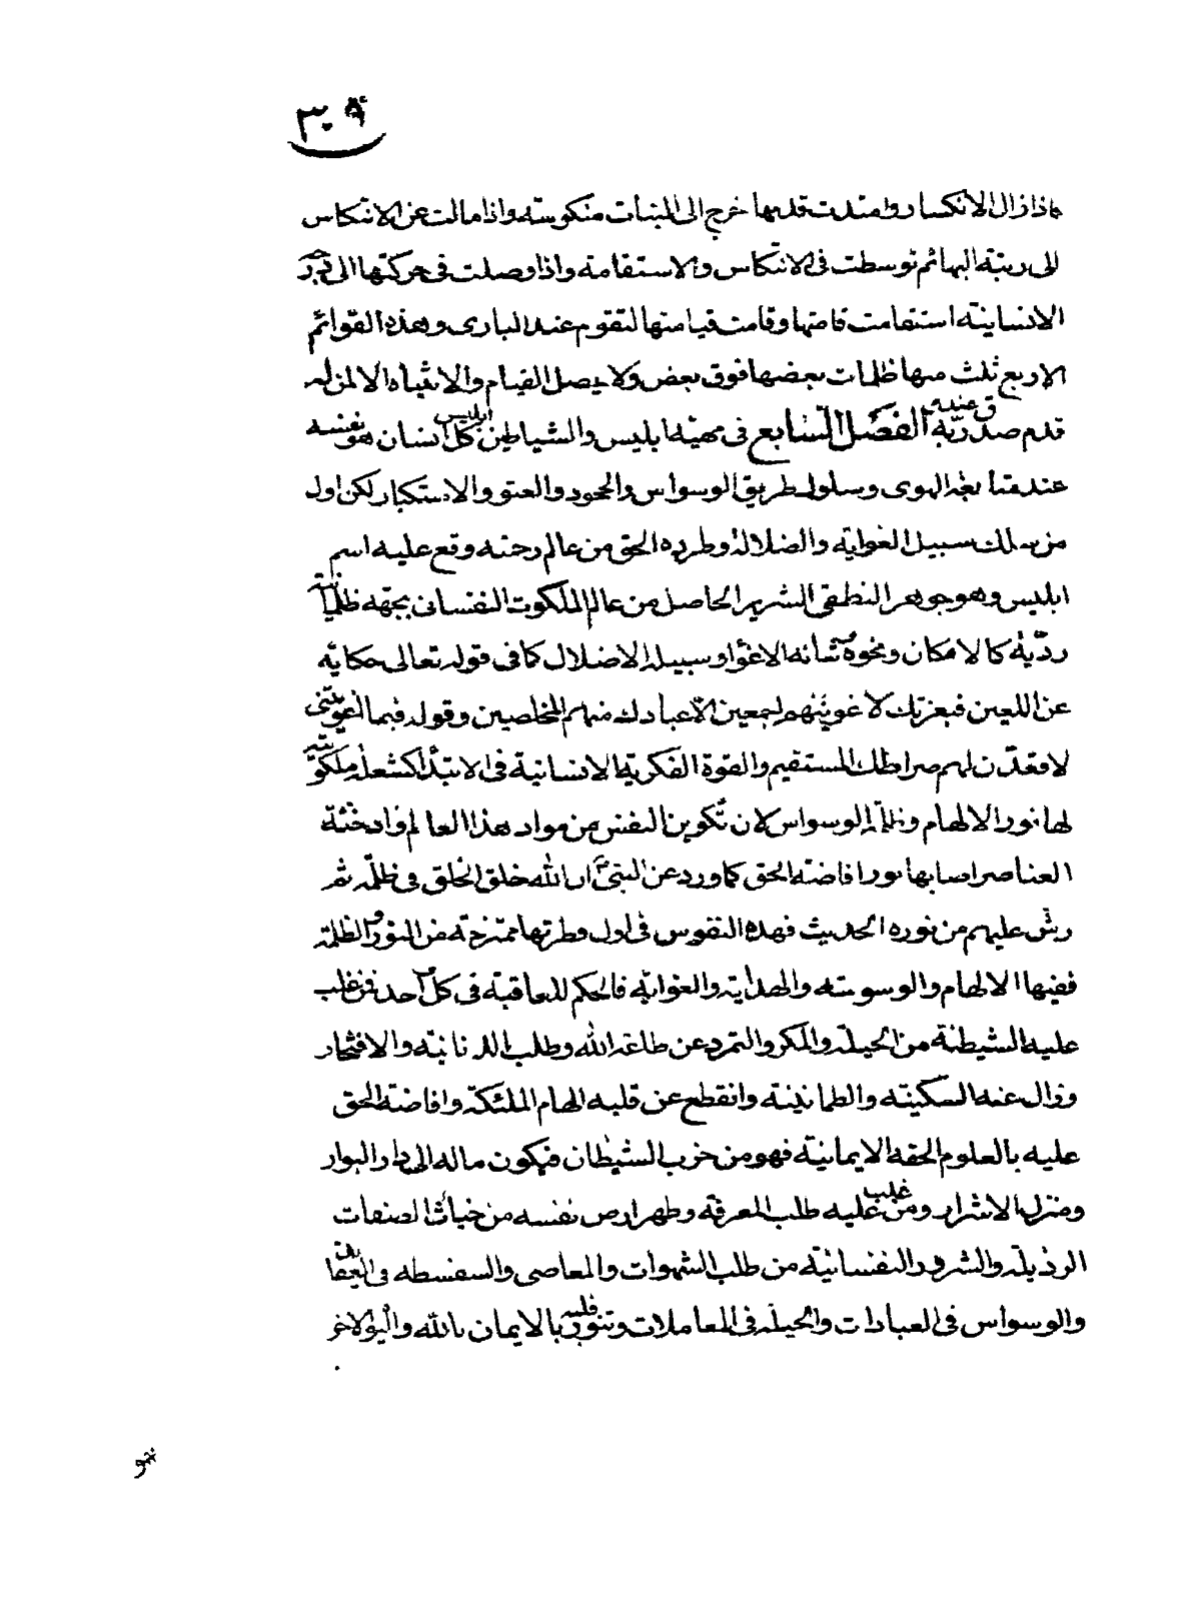 ٣٠٩
فاذا زال الانكسار وامتدت قديمها خرج الى النبات منكوسته واذا مالت عن الانتكاس
الى رتبة البهائم توسطت فى الانتكاس والاستقامة واذا وصلت فى حركتها الى درجة
الانسانية استقامت قامتها وقامت قيامتها لتقوم عند البارى وهذه القوائم
الاربع ثلث منها ظلمات بعضها فوق بعض ولا يصل القيام والانتباه الا لمن له
قدم صدق عند ربه الفصل السابع فى مهية ابليس والشياطين ابليس كل انسان هو نفسه
عند متابعة الهوى وسلوك طريق الوسواس والجحود والعتو والاستكبار لكن اول
من سلك سبيل الغواية والضلالة وطرده الحق من عالم رحمته وقع عليه اسم
ابليس وهو جوهر النطقى الشرير الحاصل من عالم الملكوت النفسانى بجهة ظلمانية
رديّة كالامكان ونحوه شانه الاغواء وسبيله الاضلال كما فى قوله تعالى حكاية
عن اللعين فبعزتك لاغوينهم اجمعين الا عبادك منهم المخلصين وقوله فبما اغويتنى
لاقعدن لهم صراطك المستقيم والقوة الفكرية الانسانية فى الابتداء كشعلة ملكوتية
لها نور الالهام وظلمة الوسواس لان تكوين النفس من مواد هذا العالم وادخنة
العناصر اصابها نور افاضة الحق كما ورد عن النبى ان الله خلق الخلق فى ظلمة ثم
رش عليهم من نوره الحديث فهذه النفوس فى اول فطرتها ممتزجة من النور والظلمة
ففيها الالهام والوسوسة والهداية والغواية فالحكم للعاقبة فى كل احد فمن غلب
عليه الشيطنة من الحيلة والمكر والتمرد عن طاعة الله وطلب اللذ نانيه والافتخار
وزال عنه السكينة والطمانينة وانقطع عن قلبه الهام الملئكة وافاضة الحق
عليه بالعلوم الحقه الايمانية فهو من حزب الشيطان فيكون ماله الى دار البوار
ومنزل الاشرار ومن غلب عليه طلب المعرفة وطهر ارض نفسه من خبائث الصفات
الرذيلة والشرور النفسانية من طلب الشهوات والمعاصى والسفسطه فى العقايد
والوسواس فى العبادات والحيلة فى المعاملات وتنور قلبه بالايمان بالله واليوم الاخر
فهو